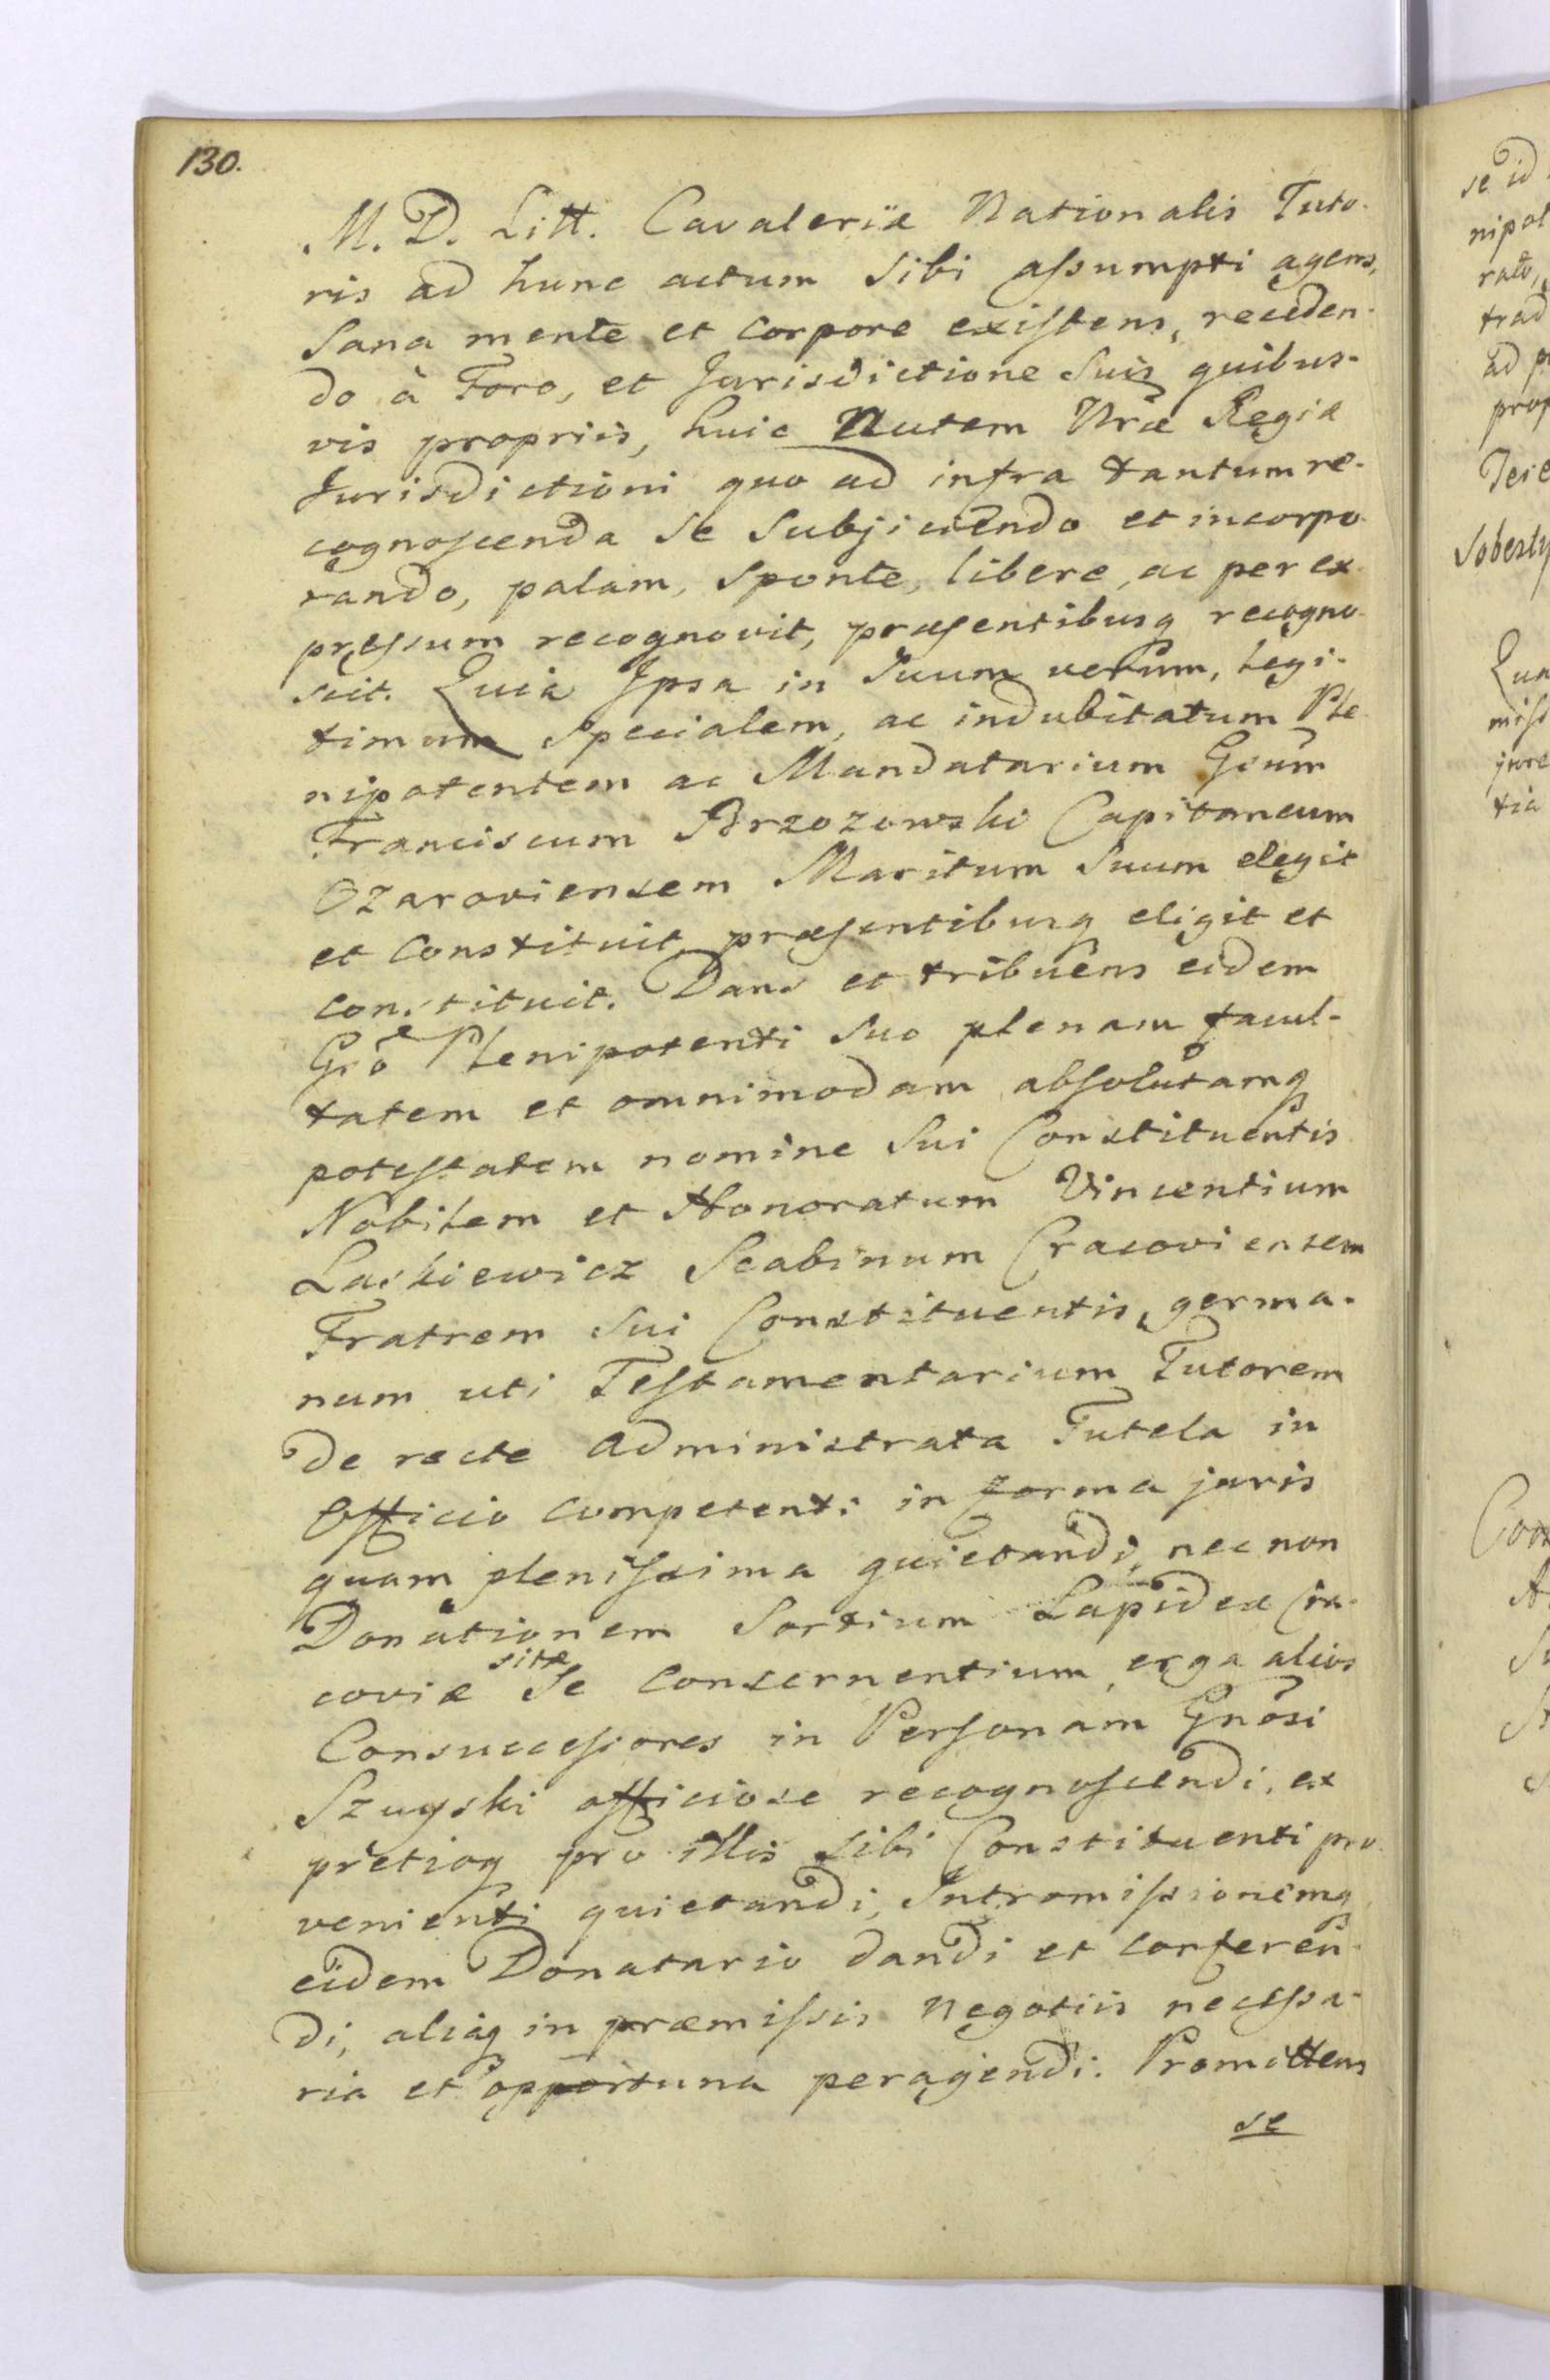 130.
M. D. Litt. Cavaleriæ Nationalis Tuto-
ris ad hunc actum Sibi assumpti agens,
Sana mente et corpore existens, receden-
do à Foro, et Jurisdictione Suis quibus-
vis propriis, huic Autem Nræ Regiæ
Jurisdictioni quo ad infra tantum re-
cognoscenda Se Subjiciendo et incorpo-
rando, palam, Sponte, libere, ac per ex-
pressum recognovit, præsentibusq recogno-
scit. Quia Ipsa in Suum verum, legi-
timum Specialem, ac indubitatum Ple-
nipotentem ac Mandatarium Gsum
Franciscum Brzozowski Capitaneum
Ozaroviensem Maritum Suum elegit
et constituit, præsentibusq eligit et
constituit. Dans et tribuens eidem
Gso Plenipotenti Suo plenam facul-
tatem et omnimodam absolutamq
potestatem nomine Sui Constituentis
Nobilem et Honoratum Vincentium
Laskiewicz Scabinum Cracoviensem
Fratrem Sui Constituentis, germa-
num uti Testamentarium Tutorem
de recte administrata Tutela in
Officio competenti in forma juris
quam plenissima quietandi, nec non
Donationem Sortium Lapideæ Cra-
coviæ sitæ Se concernentium, erga alios
Consuccessores in Personam Gnosi
Szuyski officiose recognoscendi, ex
pretioq pro illis Sibi Constituenti pro-
venienti quietandi, Intromissionemq
eidem Donatario dandi et conferen-
di, aliaq in præmissis negotiis necessa-
ria et opportuna peragendi. Promittens
se
se id
nipot
rato,
trad
ad p
prop
Tere
Sobesty
Qua
miss
jure
tia